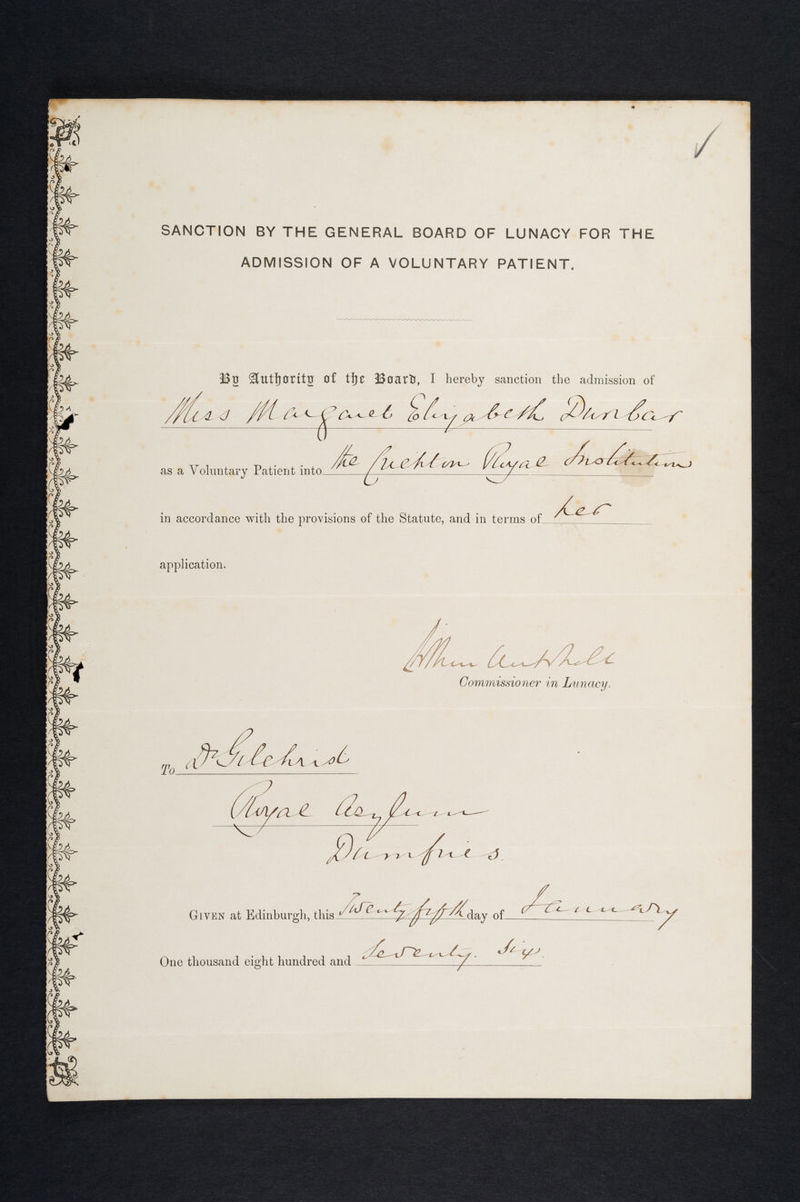 SANCTION BY THE GENERAL BOARD OF LUNACY FOR THE
ADMISSION OF A VOLUNTARY PATIENT.
By Authority of the Board, I hereby sanction the admission of
Miss Margaret Elizabeth Dunbar
as a Voluntary Patient into the Crichton Royal Institution
in accordance with the provisions of the Statute, and in terms of her
application.
Commissioner in Lunacy.
To Dr Gilchrist
Royal Asylum
Dumfries.
GIVEN at Edinburgh, this Twenty fifth day of January
One thousand eight hundred and Seventy. Six.